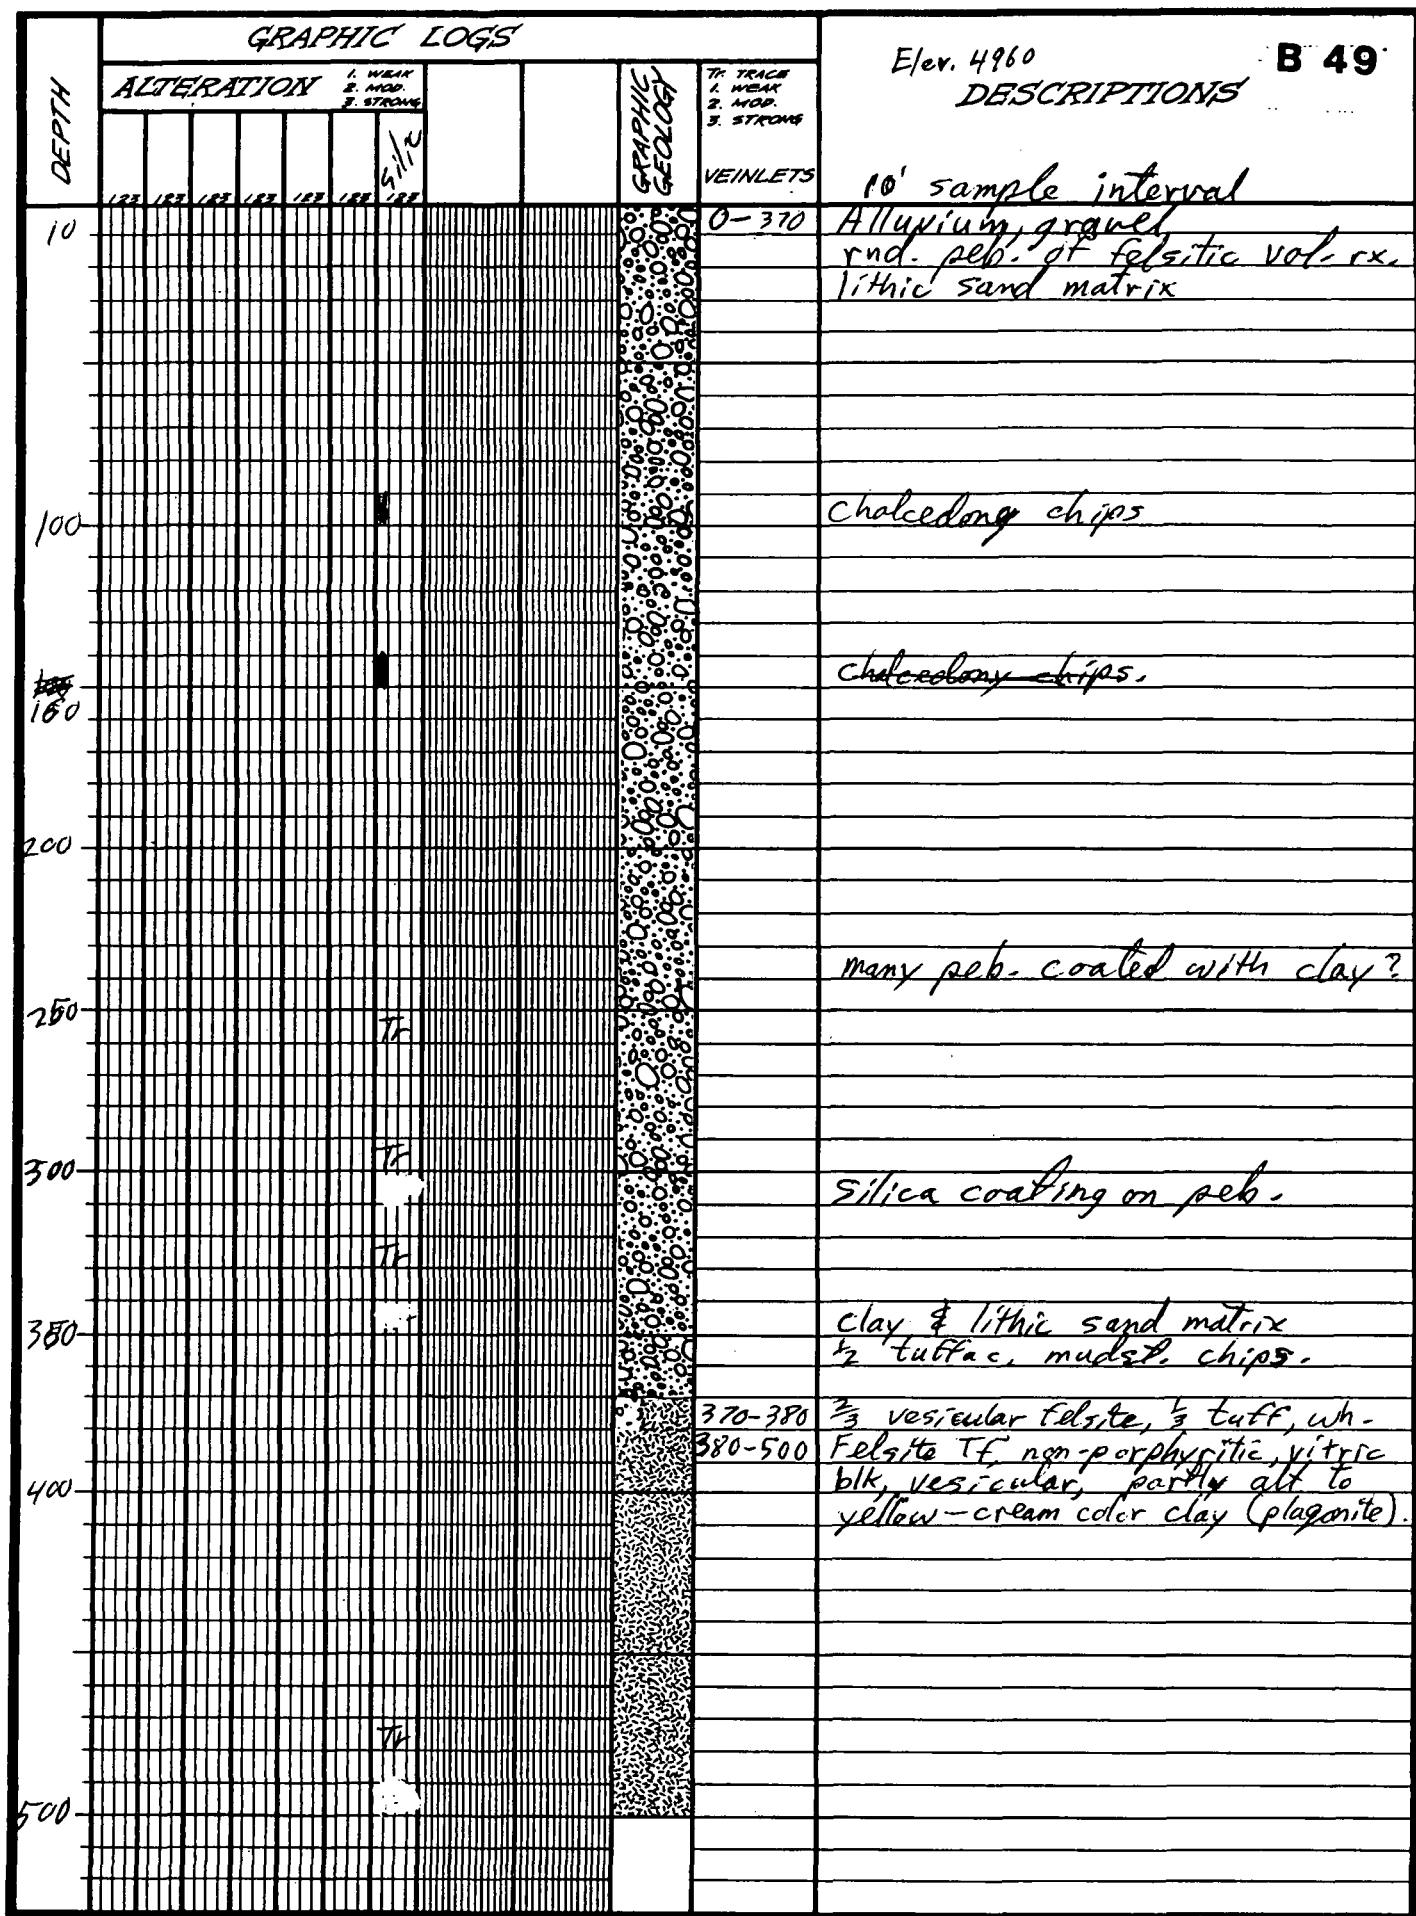 GRAPHIC LOGS
Elev. 4960
B 49
DEPTH
ALTERATION
1. WEAK
2. MOD.
3. STRONG
GRAPHIC GEOLOGY
Tr. TRACE
1. WEAK
2. MOD.
3. STRONG
VEINLETS
DESCRIPTIONS
Silic
123 123 123 123 123 123 123
10' sample interval
10
0-370 Alluvium, gravel,
rnd. peb. of felsitic vol. rx.
lithic sand matrix
100
Chalcedony chips
chalcedony chips.
160
200
many peb. coated with clay?
250
Tr
Tr
300
silica coating on peb.
Tr
350
clay & lithic sand matrix
1/2 tuffac. mudst. chips.
370-380 2/3 vesicular felsite, 1/3 tuff, wh.
380-500 Felsite Tf, non-porphyritic, vitric
400
blk, vesicular, partly alt to
yellow-cream color clay (plagonite).
Tr
500